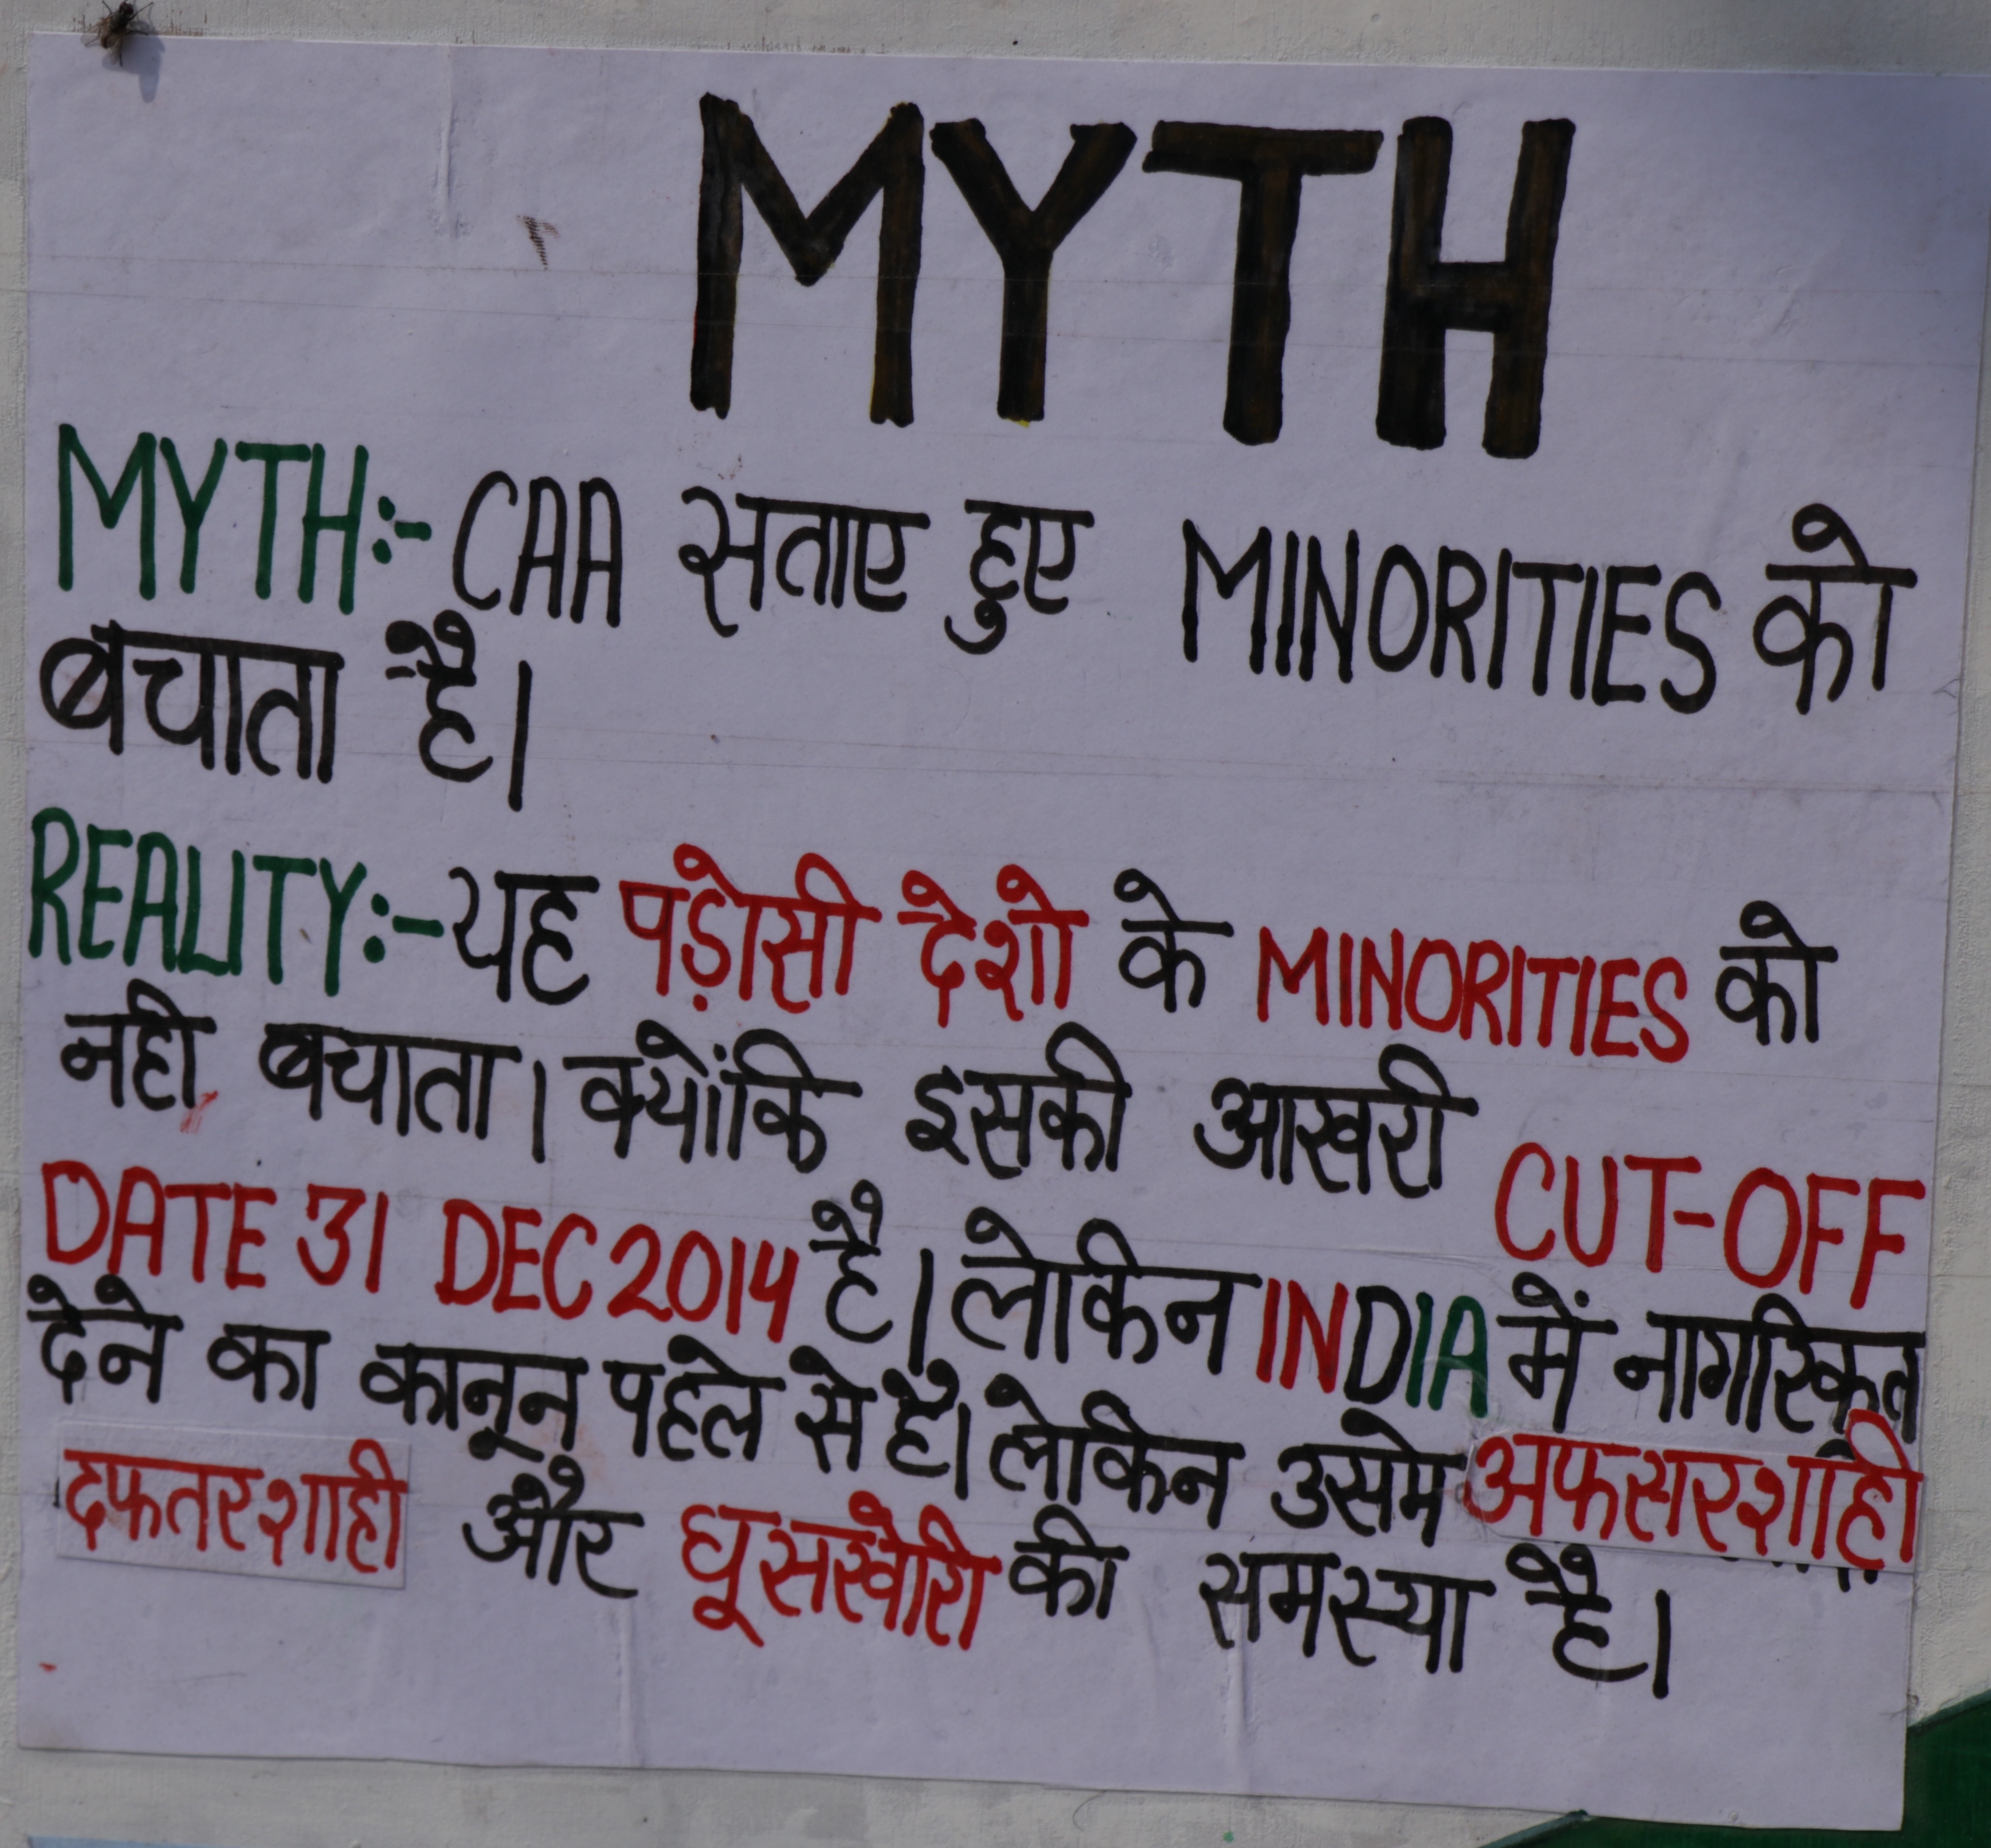 MYTH
MYTH:- CAA सताए हुए MINORITIES को
बचाता है।
REALITY:- यह पड़ोसी देशो के MINORITIES को
नही बचाता। क्योंकि इसकी आखरी CUT-OFF
DATE 31 DEC 2014 है। लेकिन INDIA में नागरिकत
देने का कानून पहले से है। लेकिन उसमे अफसरशाही
दफतरशाही और घूसखोरी की समस्या है।